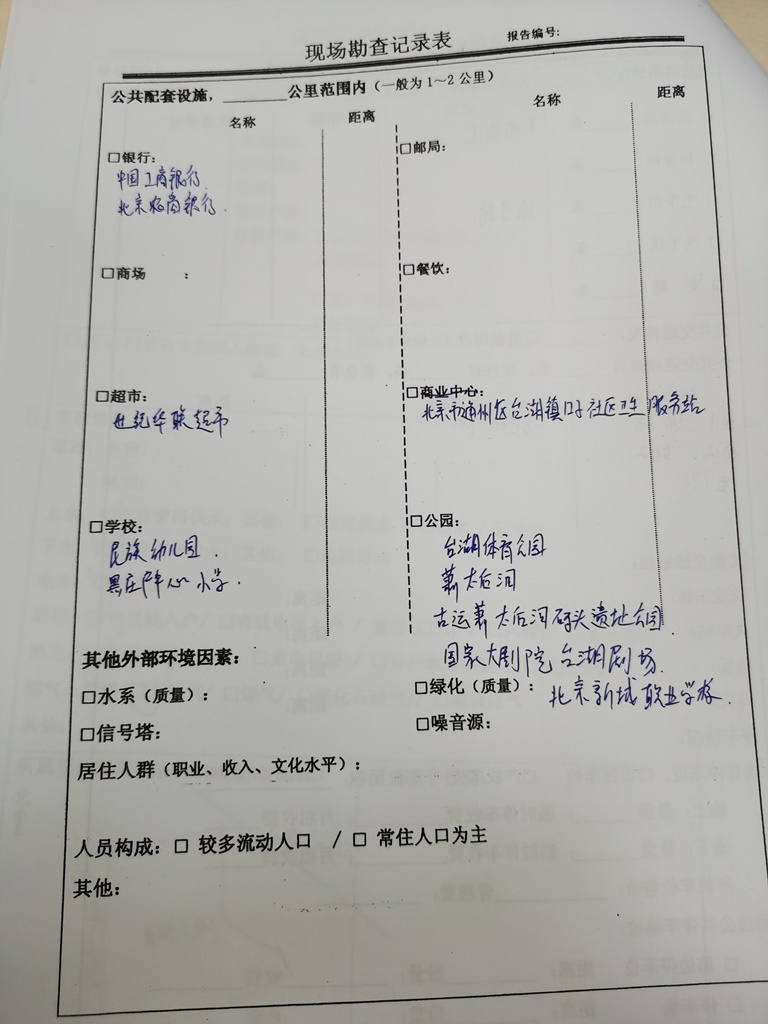 现场勘查记录表
报告编号:
公共配套设施，________公里范围内（一般为1～2公里）
名称 距离 名称 距离
□银行:
中国工商银行
北京农商银行.
□邮局:
□商场 :
□餐饮:
□超市:
世纪华联超市
□商业中心:
北京市通州区台湖镇口子社区卫生服务站
□学校:
民族幼儿园.
黑庄户中心小学.
□公园:
台湖体育公园
萧太后河
古运萧太后河码头遗址公园.
国家大剧院台湖剧场.
其他外部环境因素:
□水系（质量）:
□绿化（质量）:
北京新城职业学校.
□信号塔:
□噪音源:
居住人群（职业、收入、文化水平）:
人员构成: □ 较多流动人口 / □ 常住人口为主
其他: